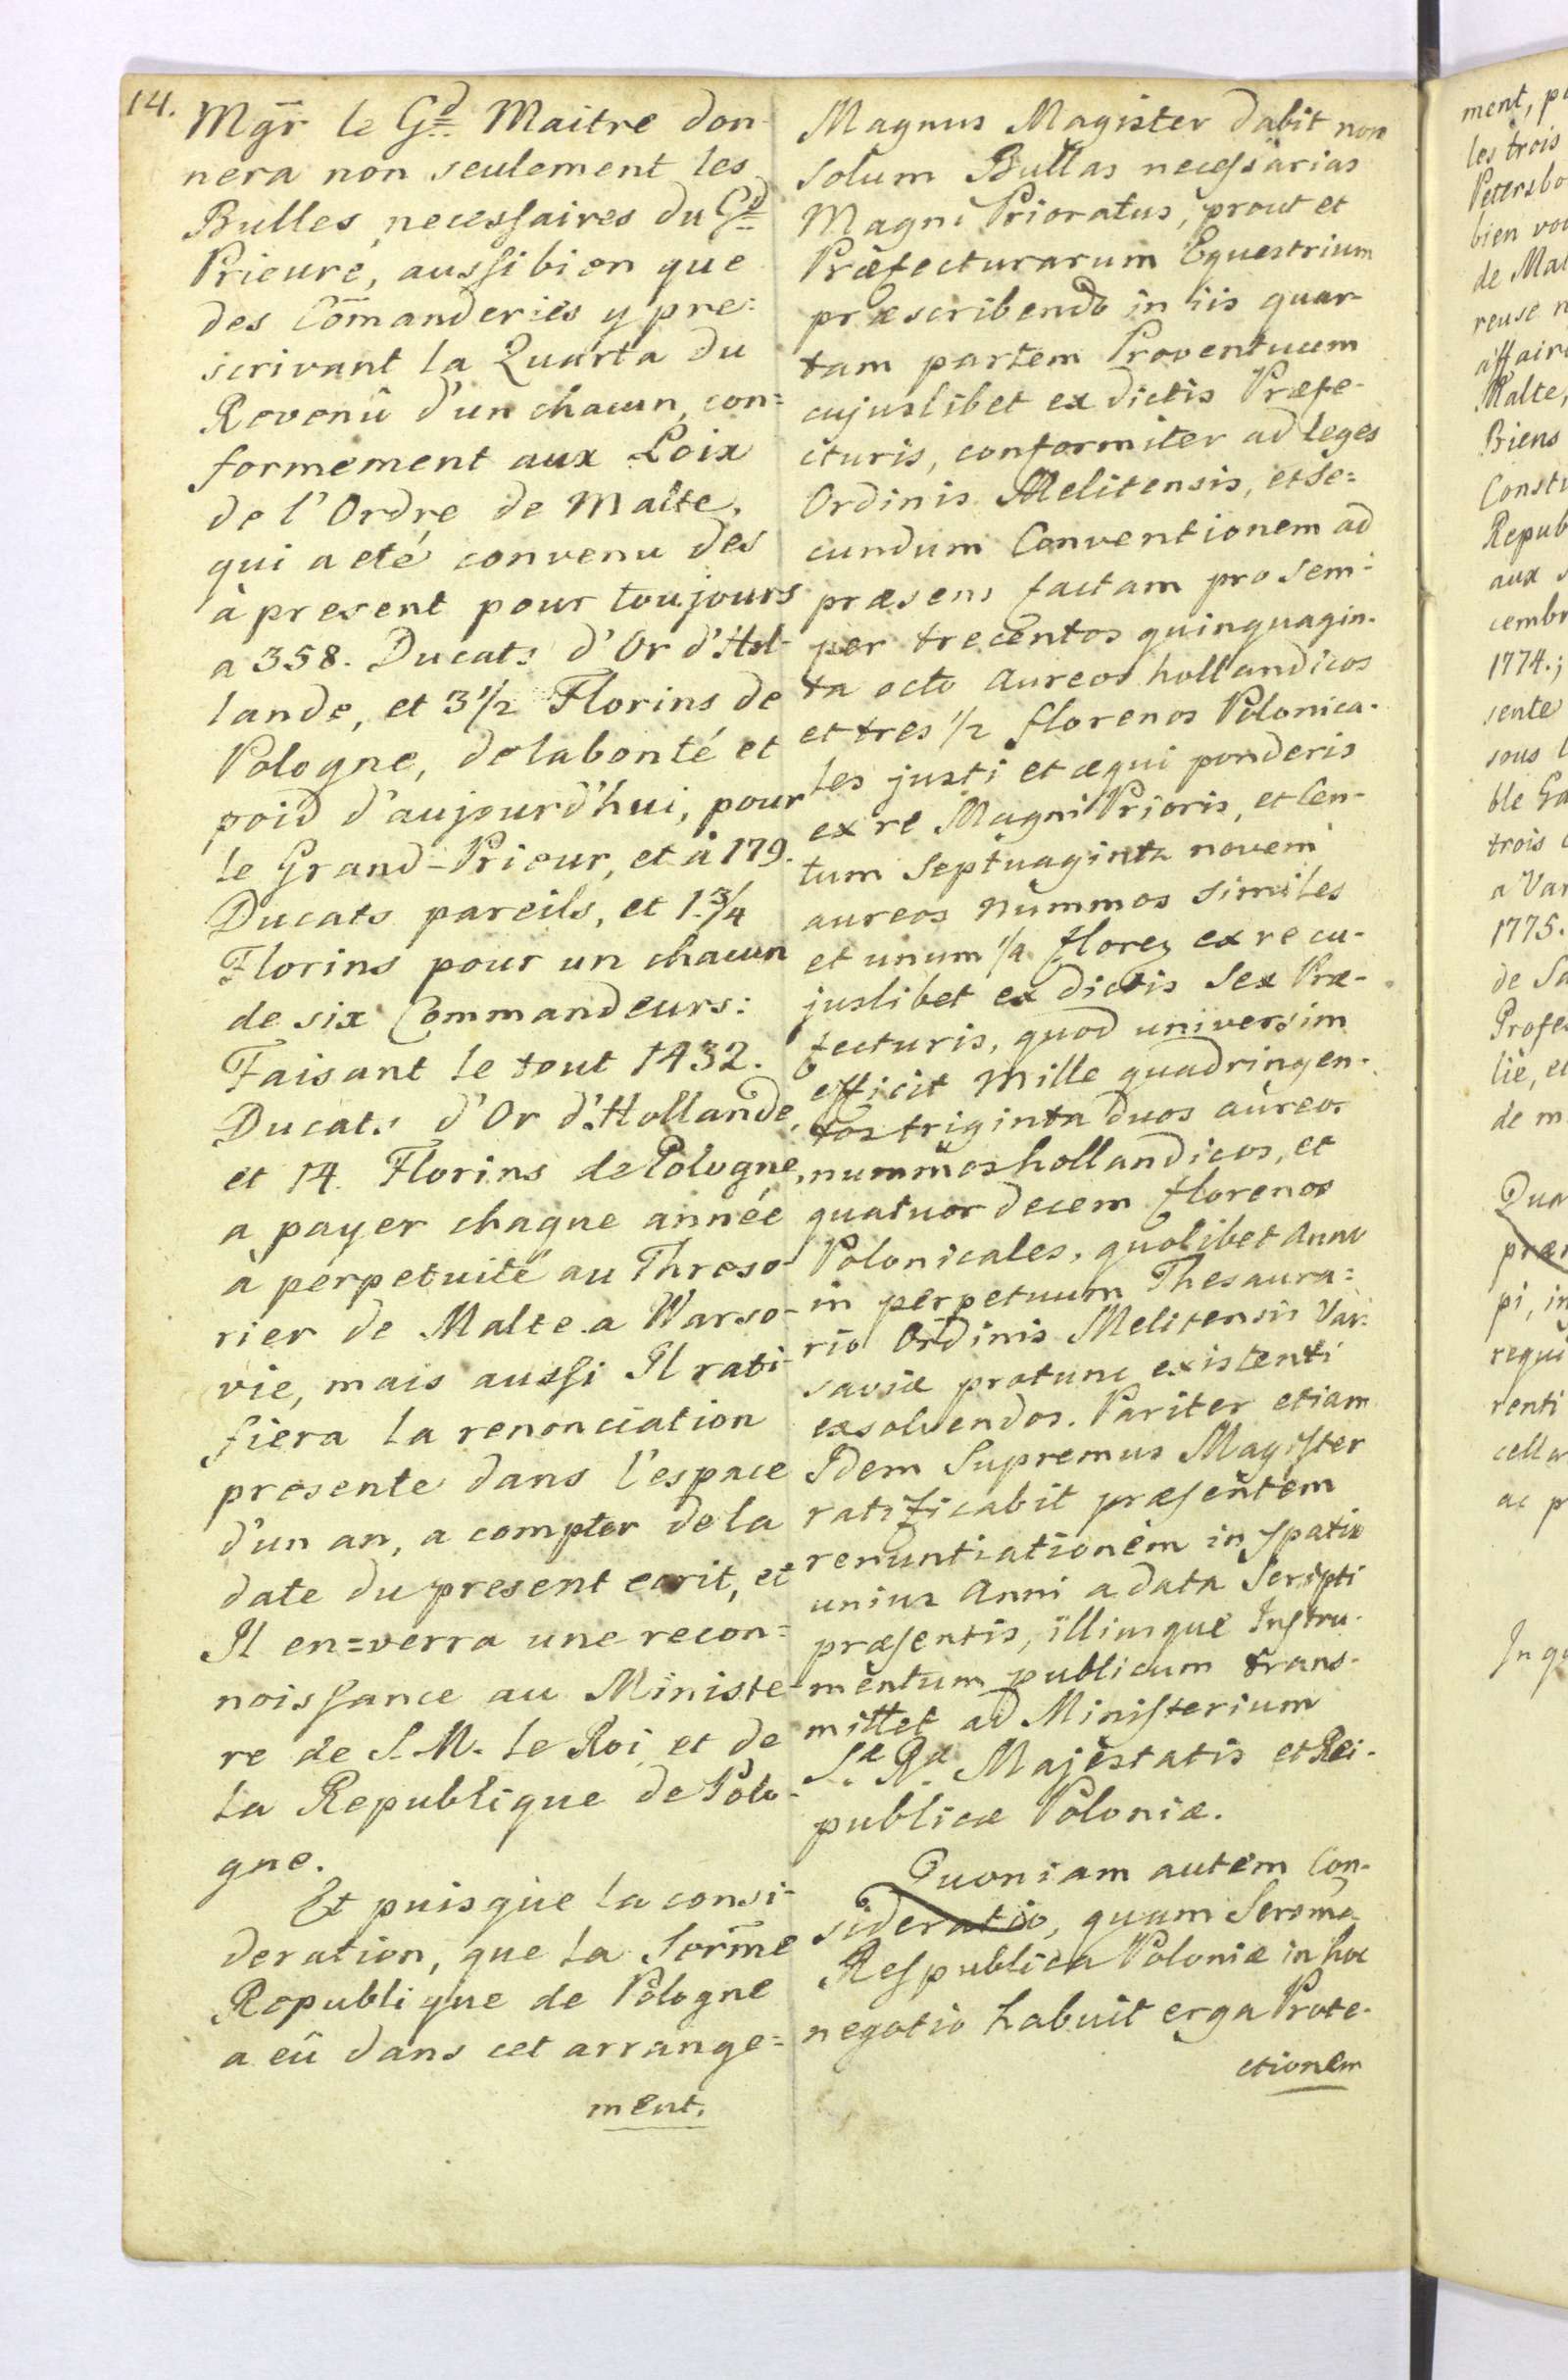 14.
Mgr̄ le Gd Maitre don-
nera non seulement les
Bulles necessaires du Gd
Prieure, aussibien que
des Com̄anderies y pre=
scrivant la Quarta du
Revenû d'un chacun, con=
formement aux Loix
de l'Ordre de Malte,
qui a eté convenu des
à present pour toujours
a 358. Ducats d'Or d'Hol-
lande, et 3 1/2 Florins de
Pologne, de la bonté et
poid d'aujourd'hui, pour
le Grand-Prieur, et à 179.
Ducats pareils, et 1.3/4
Florins pour un chacun
de six Commandeurs:
Faisant le tout 1432.
Ducats d'Or d'Hollande,
et 14. Florins de Pologne,
a payer chaque année
à perpetuité au Threso-
rier de Malte a Warso-
vie, mais aussi Il rati-
fiera la renonciation
presente dans l'espace
d'un an, a compter de la
date du present ecrit, et
Il en=verra une recon=
noissance au Ministe-
re de S.M. le Roi et de
la Republique de Polo-
gne.
Et puisque la consi-
deration, que la Serm̄e
Republique de Pologne
a eû dans cet arrange=
ment.
Magnus Magister dabit non
solum Bullas necessarias
Magni Prioratus, prout et
Præfecturarum Equestrium
præscribendo in iis quar-
tam partem Proventuum
cujuslibet ex dictis Præfe-
cturis, conformiter ad leges
Ordinis Melitensis, et se=
cundum Conventionem ad
præsens factam pro sem-
per trecentos quinquagin-
ta octo Aureos hollandicos
et tres 1/2 florenos Polonica-
les justi et æqui ponderis
ex re Magni Prioris, et Cen-
tum Septuaginta novem
aureos nummos similes
et unum florez ex re cu-
juslibet ex dictis Sex Præ-
fecturis, quod universim
efficit Mille quadringen-
tos triginta duos aureos
nummos hollandicos, et
quatuor decem florenos
Polonicales, quolibet Anno
in perpetuum Thesaura=
rio Ordinis Melitensis Var-
saviæ protunc existenti
exsolvendos. Pariter etiam
Idem Supremus Magister
ratificabit præsentem
renuntiationem in Spatio
unius Anni a data Scripti
præsentis, illiusque Instru-
mentum publicum trans-
mittet ad Ministerium
S.æ R.æ Majestatis et Rei-
publicæ Poloniæ.
Quoniam autem Con-
sideratio, quam Serem̄a
Respublica Poloniæ in hoc
negotio habuit erga Prote-
ctionem
ment,
les trois
Petersbo
bien vou
de Mal
reuse n
affaire
Malte,
Biens
Consti
Repub
aux s
cembr
1774.;
sente
sous l
ble Ga
trois
a Var
1775.
de Sa
Profes
lié, et
de m
Qua
præ
pi, in
requi
renti
cella
ac p
In qu